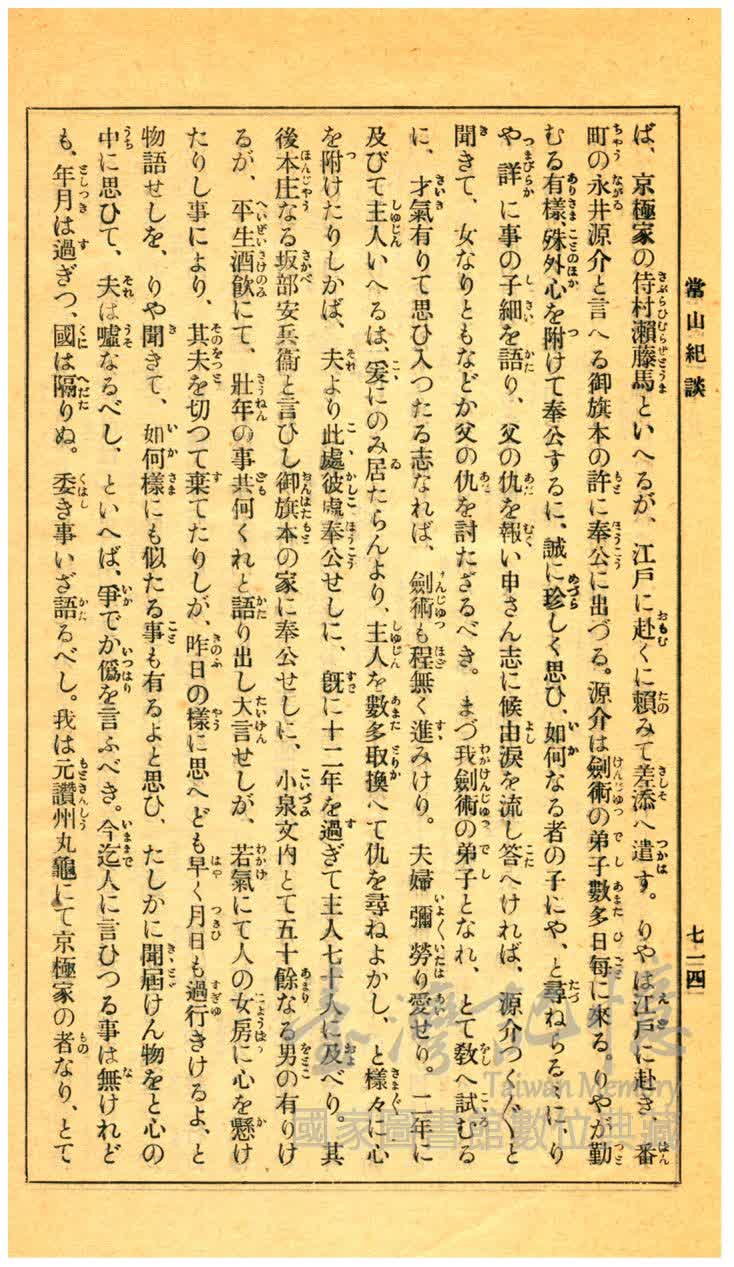 常山紀談
七一四
ば、京極家の侍村瀬藤馬といへるが、江戸に赴くに頼みて差添へ遣す。りやは江戸に赴き、番
町の永井源介と言へる御旗本の許に奉公に出づる。源介は劍術の弟子數多日每に來る。りやが勤
むる有樣、殊外心を附けて奉公するに、誠に珍しく思ひ、如何なる者の子にや、と尋ねらるゝに、り
や詳に事の子細を語り、父の仇を報い申さん志に候由涙を流し答へければ、源介つくぐと
聞きて、女なりともなどか父の仇を討たざるべき。まづ我劍術の弟子となれ、とて敎へ試むる
に、才氣有りて思ひ入つたる志なれば、劍術も程無く進みけり。夫婦彌勞り愛せり。二年に
及びて主人いへるは、爰にのみ居たらんより、主人を數多取換へて仇を尋ねよかし、と樣々に心
を附けたりしかば、夫より此處彼處奉公せしに、旣に十二年を過ぎて主人七十人に及べり。其
後本庄なる坂部安兵衞と言ひし御旗本の家に奉公せしに、小泉文內とて五十餘なる男の有りけ
るが、平生酒飮にて、壯年の事共何くれと語り出し大言せしが、若氣にて人の女房に心を懸け
たりし事により、其夫を切つて棄てたりしが、昨日の樣に思へども早く月日も過行きけるよ、と
物語せしを、りや聞きて、如何樣にも似たる事も有るよと思ひ、たしかに聞屆けん物をと心の
中に思ひて、夫は噓なるべし、といへば、爭でか僞を言ふべき。今迄人に言ひつる事は無けれど
も、年月は過ぎつ、國は隔りぬ。委き事いざ語るべし。我は元讃州丸龜にて京極家の者なり、とて
臺灣記憶
Taiwan Memory
國家圖書館數位典藏